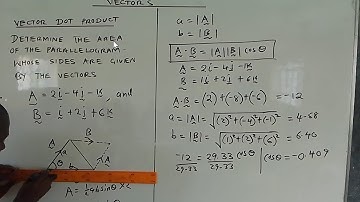 VECTORS
VECTOR DOT PRODUCT
DETERMINE THE AREA
OF THE PARALLELOGRAM
WHOSE SIDES ARE GIVEN
BY THE VECTORS
A = 2i - 4j - k, and
B = i + 2j + 6k
B
A
a
θ
A = ½ab sinθ × 2
a = |A|
b = |B|
A · B = |A||B| cosθ
A = 2i - 4j - k
B = i + 2j + 6k
A · B = (2) + (-8) + (-6) = -12
a = |A| = √(2)² + (-4)² + (-1)² = 4.58
b = |B| = √(1)² + (2)² + (6)² = 6.40
-12 = 29.33 cosθ
29.33 29.33
cosθ = -0.409